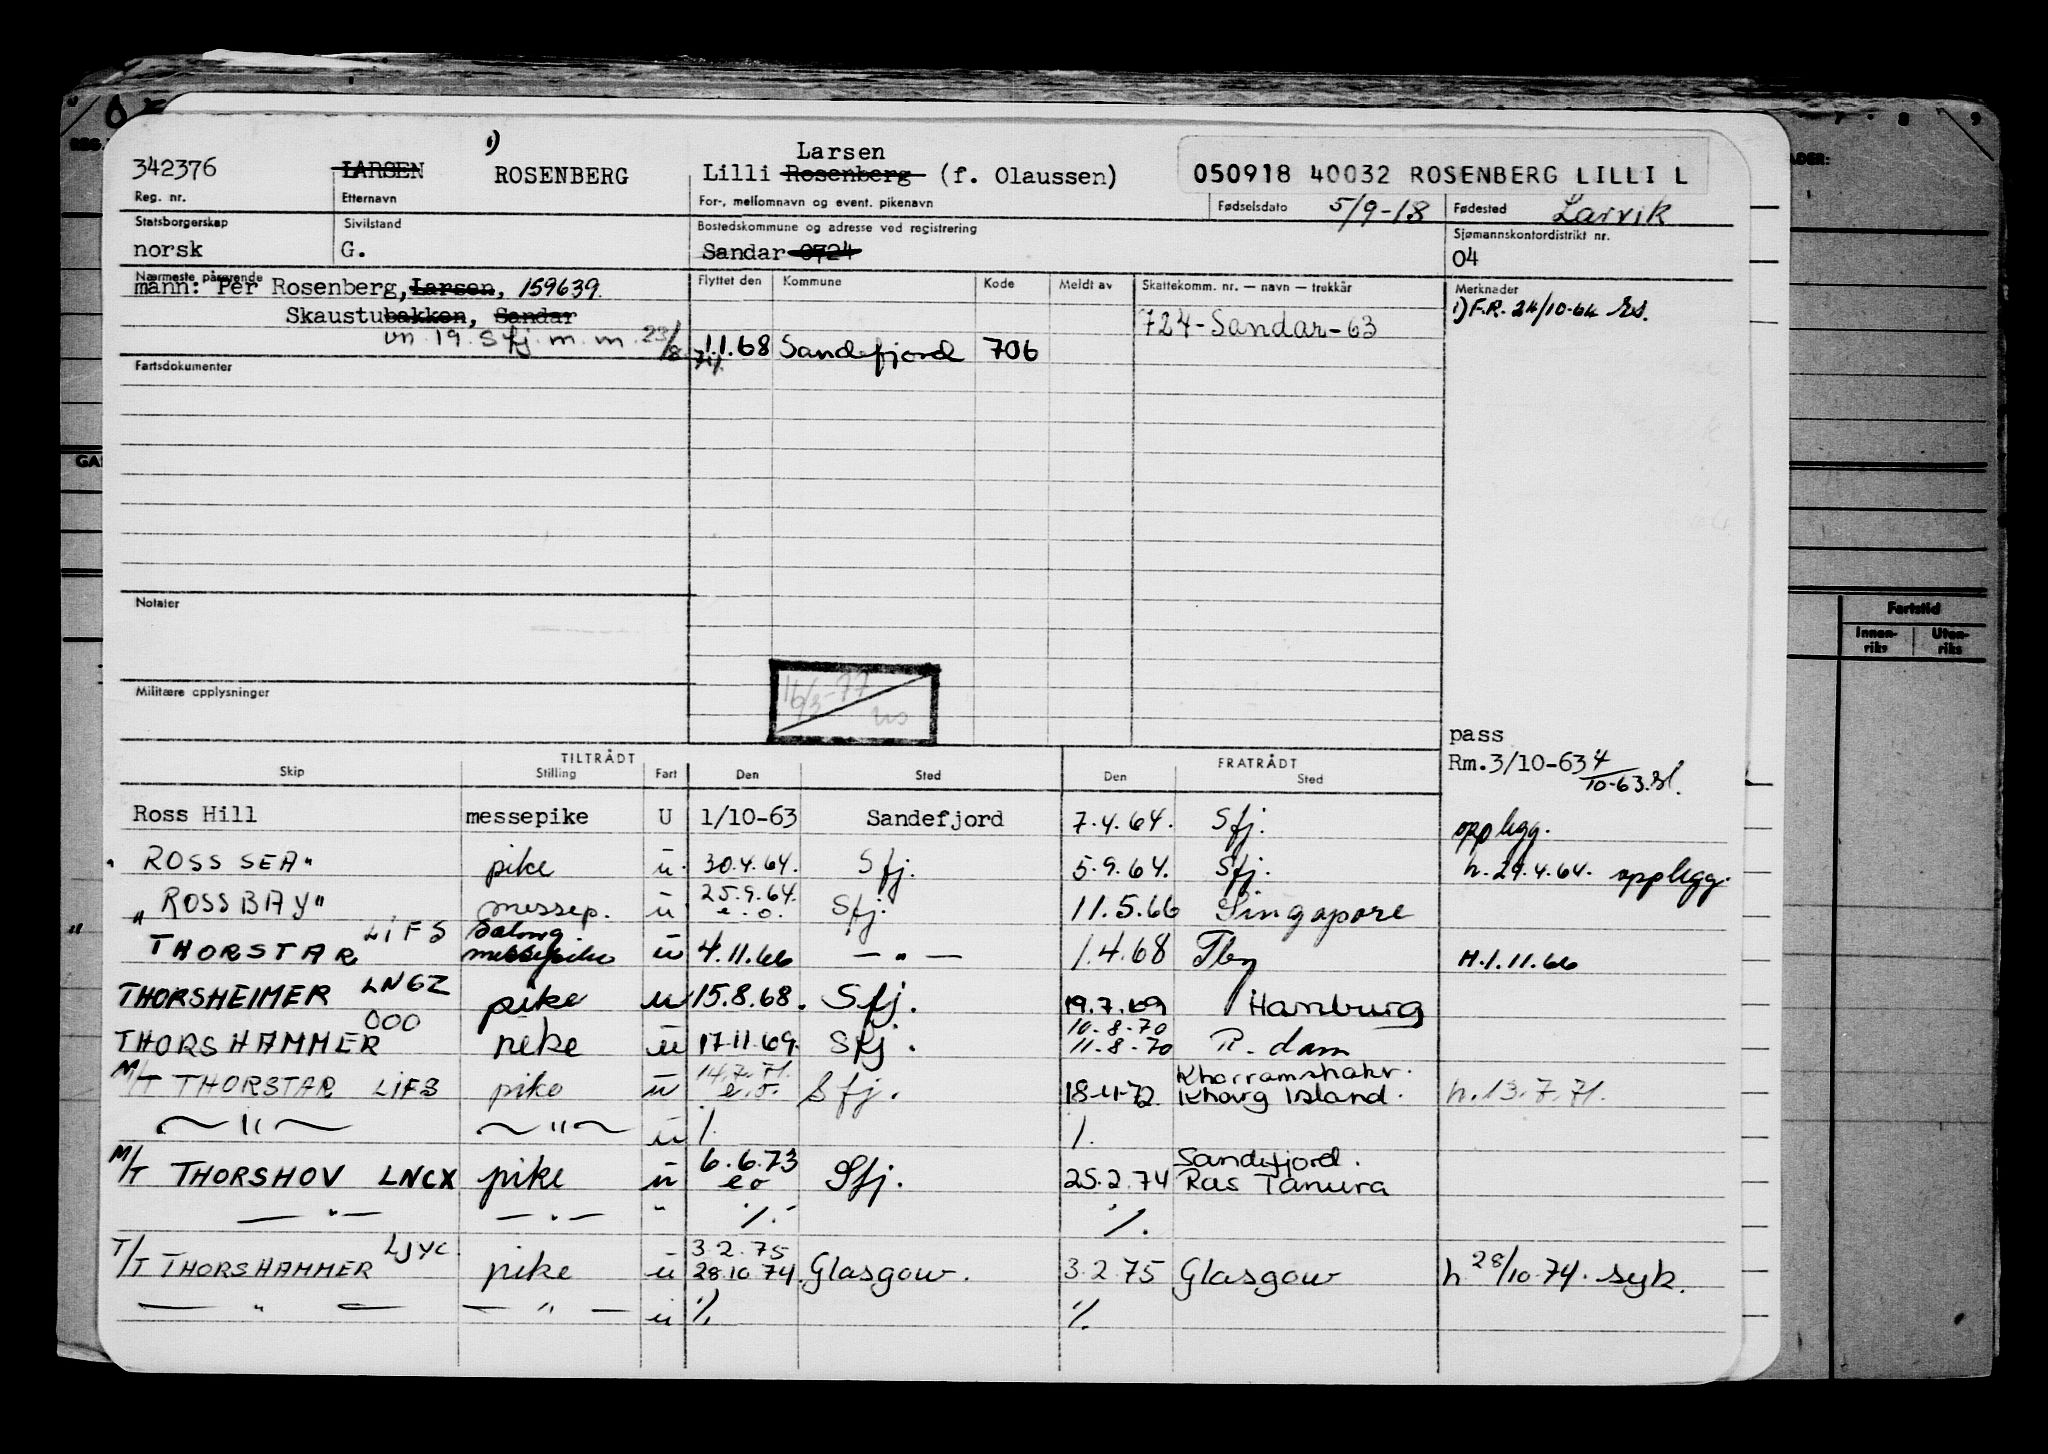 Larsen
342376 LARSEN 1) ROSENBERG Lilli Rosenberg (f. Olaussen) 050918 40032 ROSENBERG LILLI L
Reg. nr. Etternavn For-, mellomnavn og event. pikenavn Fødselsdato 5/9-18 Fødested Larvik
Statsborgerskap Sivilstand Bostedskommune og adresse ved registrering Sjømannskontordistrikt nr.
norsk G. Sandar 0724 04
Nærmeste pårørende Flyttet den Kommune Kode Meldt av Skattekomm. nr. — navn — trekkår Merknader
mann: Per Rosenberg, Larsen, 159639. 1) F.R. 24/10-64
Skaustubakken, Sandar 724-Sandar-63
un. 19. Sfj. m. m. 23/8 71. 1.1.68 Sandefjord 706
Fartsdokumenter
Notater
Militære opplysninger
16/3-77
pass
Rm.3/10-63 4/10-63.
TILTRÅDT FRATRÅDT
Skip Stilling Fart Den Sted Den Sted
Ross Hill messepike U 1/10-63 Sandefjord 7.4.64. Sfj. opplegg.
"ROSS SEA" pike u. 30.4.64. Sfj. 5.9.64. Sfj. h. 29.4.64. opplegg.
"ROSS BAY" messep. u 25.9.64. e.o. Sfj. 11.5.66 Singapore
THORSTAR LIFS Salong messepike u 4.11.66 — " — 1.4.68 Tbg H.1.11.66
THORSHEIMER LNGZ pike u 15.8.68. Sfj. 19.7.69 Hamburg
10.8.70
THORSHAMMER OOO pike u 17.11.69. Sfj. 11.8.70 R.dam
14.7.71. Khorramshahr.
M/T THORSTAR LIFS pike u e.o. Sfj. 18.11.72 Kharg Island. h. 13.7.71.
— " — — " — u /. /.
6.6.73 Sandefjord.
M/T THORSHOV LNCX pike u e.o Sfj. 25.2.74 Ras Tanura
— " — — " — " /. /.
3.2.75
T/T THORSHAMMER LJYC pike u 28.10.74. Glasgow. 3.2.75 Glasgow h 28/10.74. syk.
— " — — " — u /. /.
Fartstid
Innen-riks Uten-riks